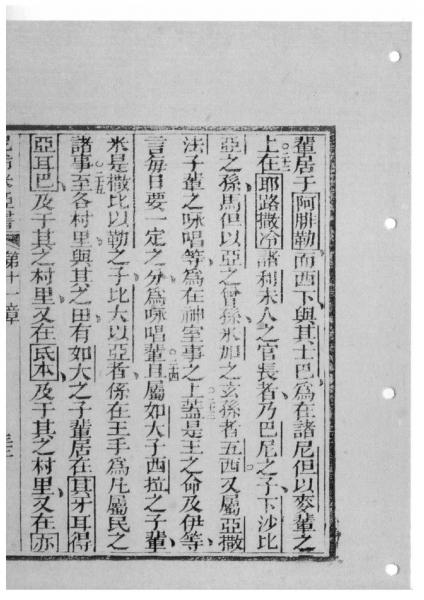 輩居于阿腓勒而西下與其士巴為在諸尼但以麥輩之
上○二二在耶路撒冷諸利未人之官長者乃巴尼之子下沙比
亞之孫馬但以亞之曾孫米加之玄孫者五西又屬亞撒
法子輩之咏唱等為在神室事之上○二三蓋是王之命及伊等
言每日要一定之分為咏唱輩○二四且屬如大子西拉之子輩
米是撒比以勒之子比大以亞者係在王手為凡屬民之
諸事○二五至各村里與其之田有如大之子輩居在其牙耳得
亞耳巴及于其之村里又在氐本及于其之村里又在亦
尼希米亞書 第十一章